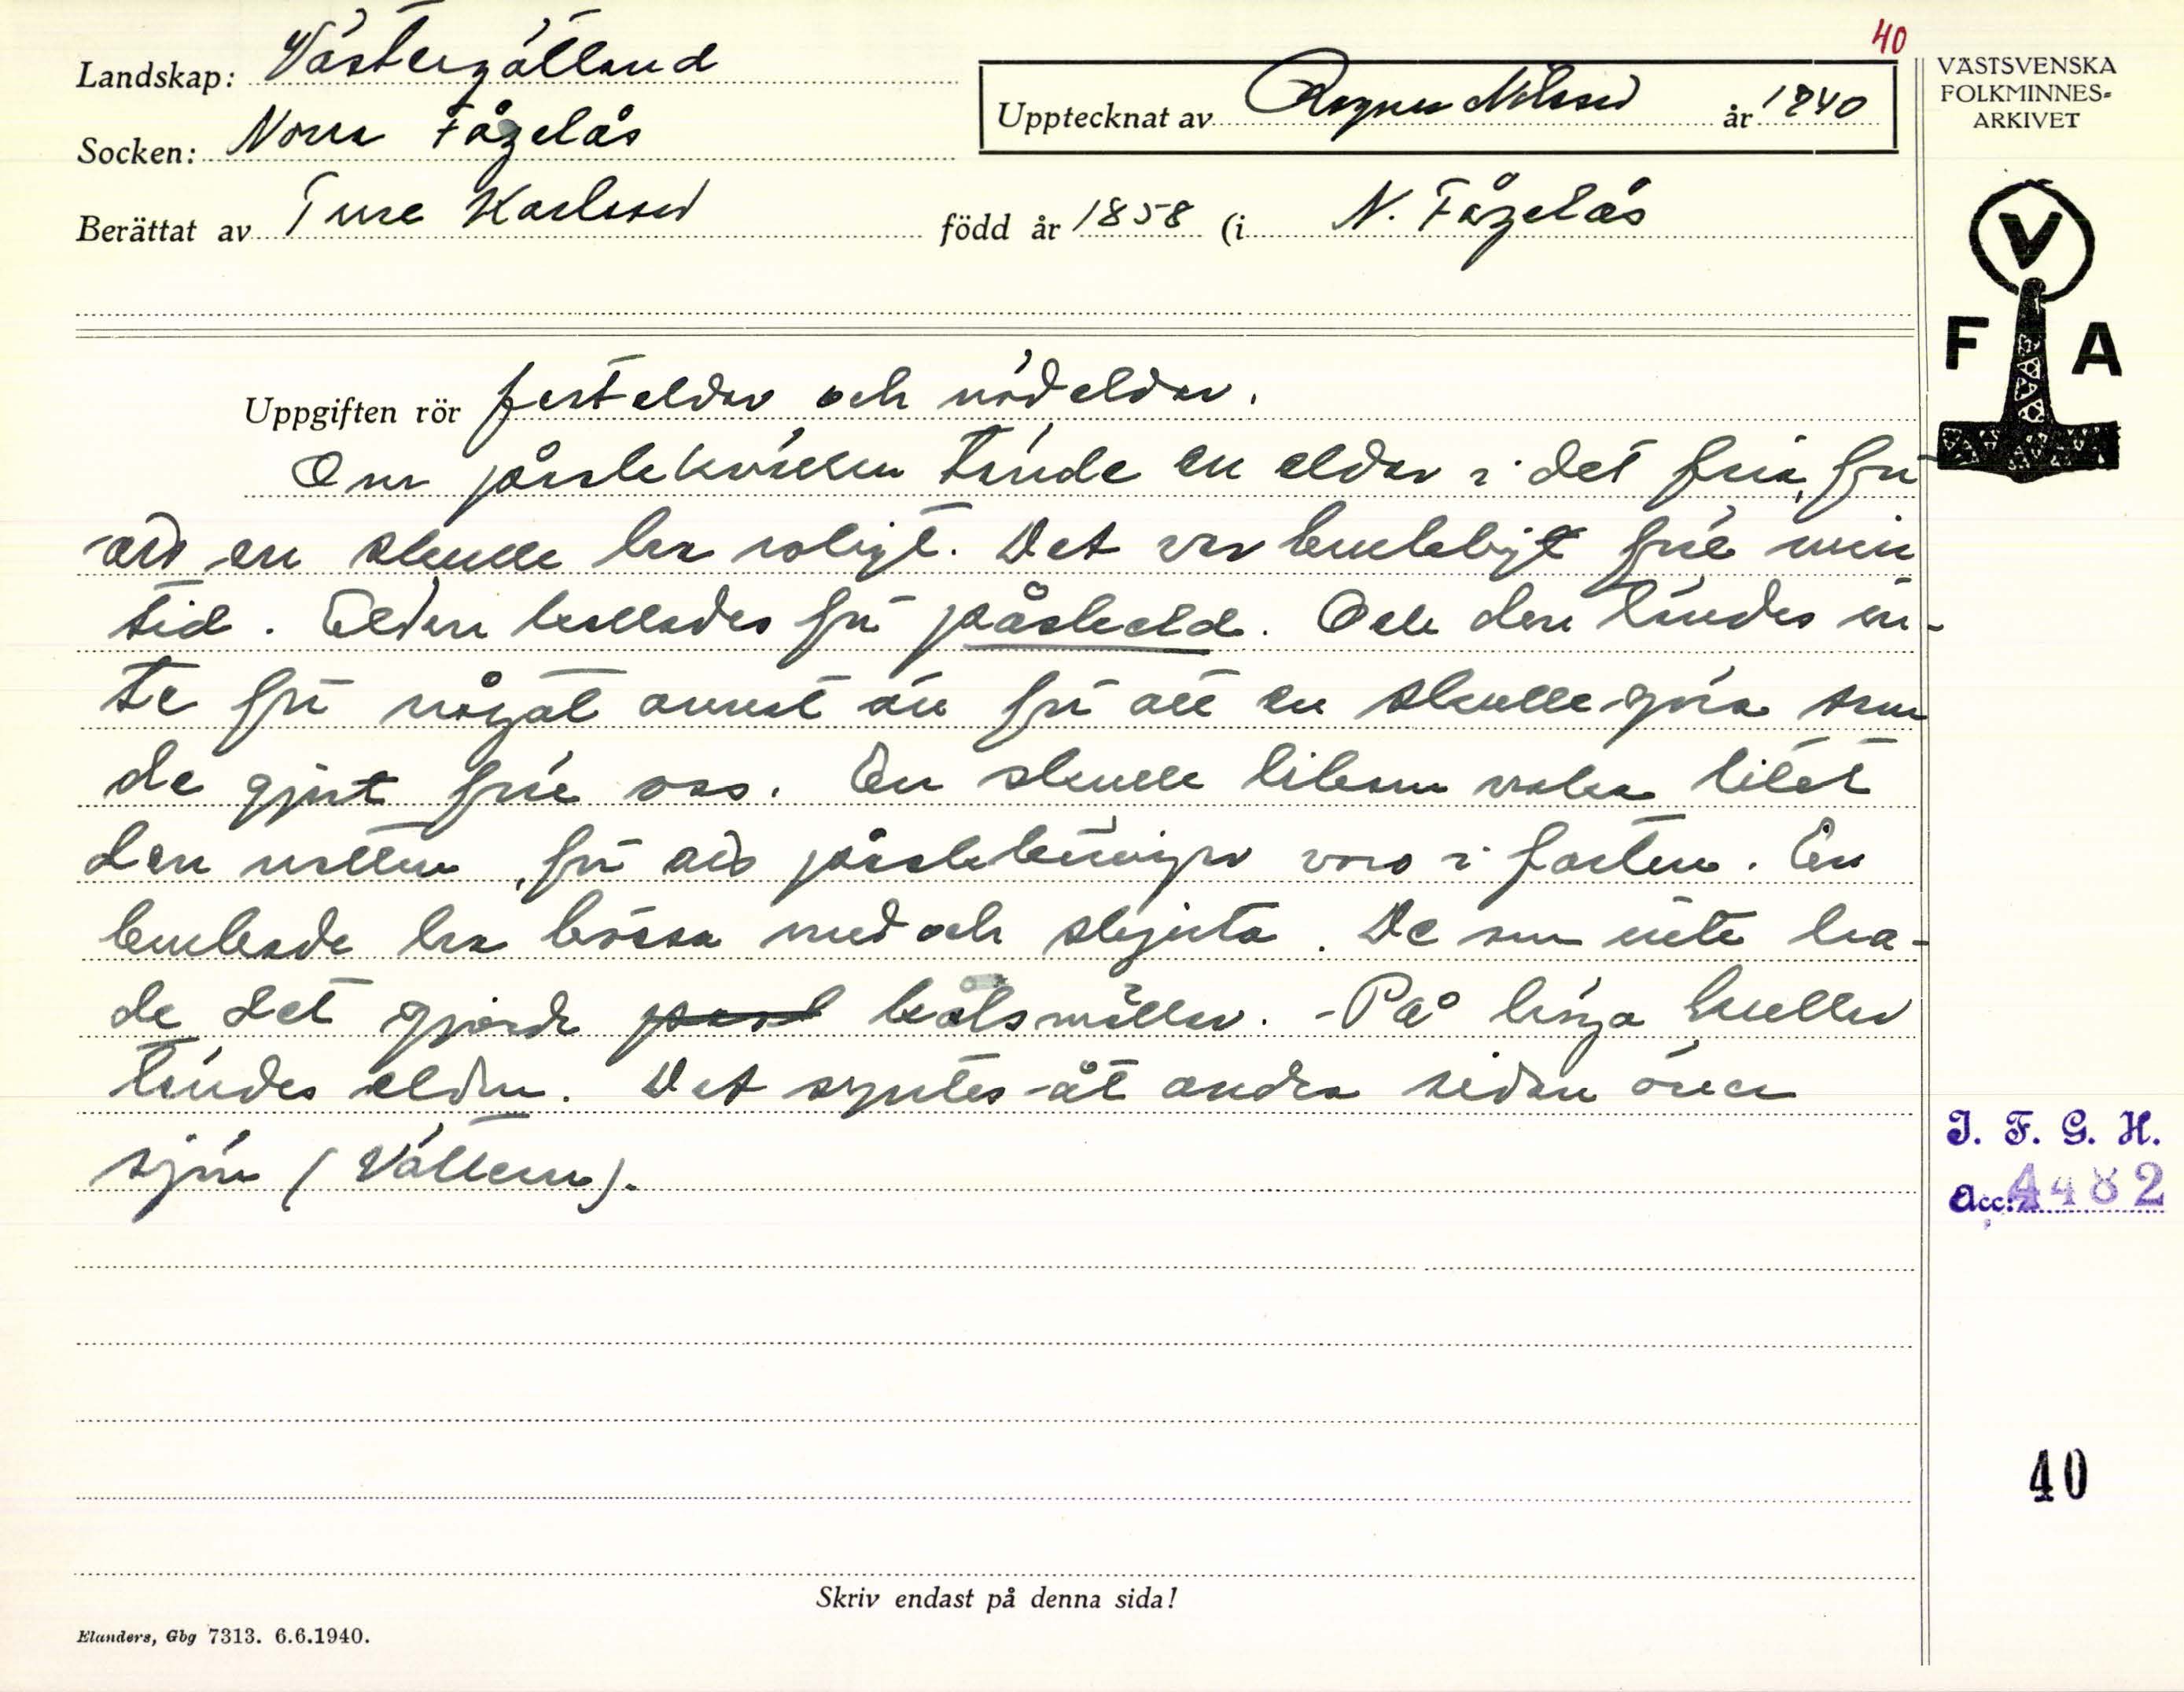 40
Landskap: Västergötland
Upptecknat av Ragnar Nilsson år 1940
VÄSTSVENSKA
FOLKMINNES-
ARKIVET
Socken: Norra Fågelås
Berättat av Ture Karlsson född år 1858 (i N. Fågelås
V
F A
Uppgiften rör festeldar och nödeldar.
Om påskekvällen tände en eldar i det fria, för
att en skulle ha roligt. Det var brukligt före min
tid. Elden kallades för påskeld. Och den tändes in-
te för något annat än för att en skulle göra som
de gjort före oss. En skulle liksom vaka litet
den natten, för att påskkäringar voro i farten. En
brukade ha bössa med och skjuta. De som inte ha-
de det gjorde kålsmällar. - På höga kullar
tändes elden. Det syntes åt andra sidan över
sjön (Vättern).
I. F. G. H.
Acc. 4482
40
Skriv endast på denna sida!
Elanders, Gbg 7313. 6.6.1940.